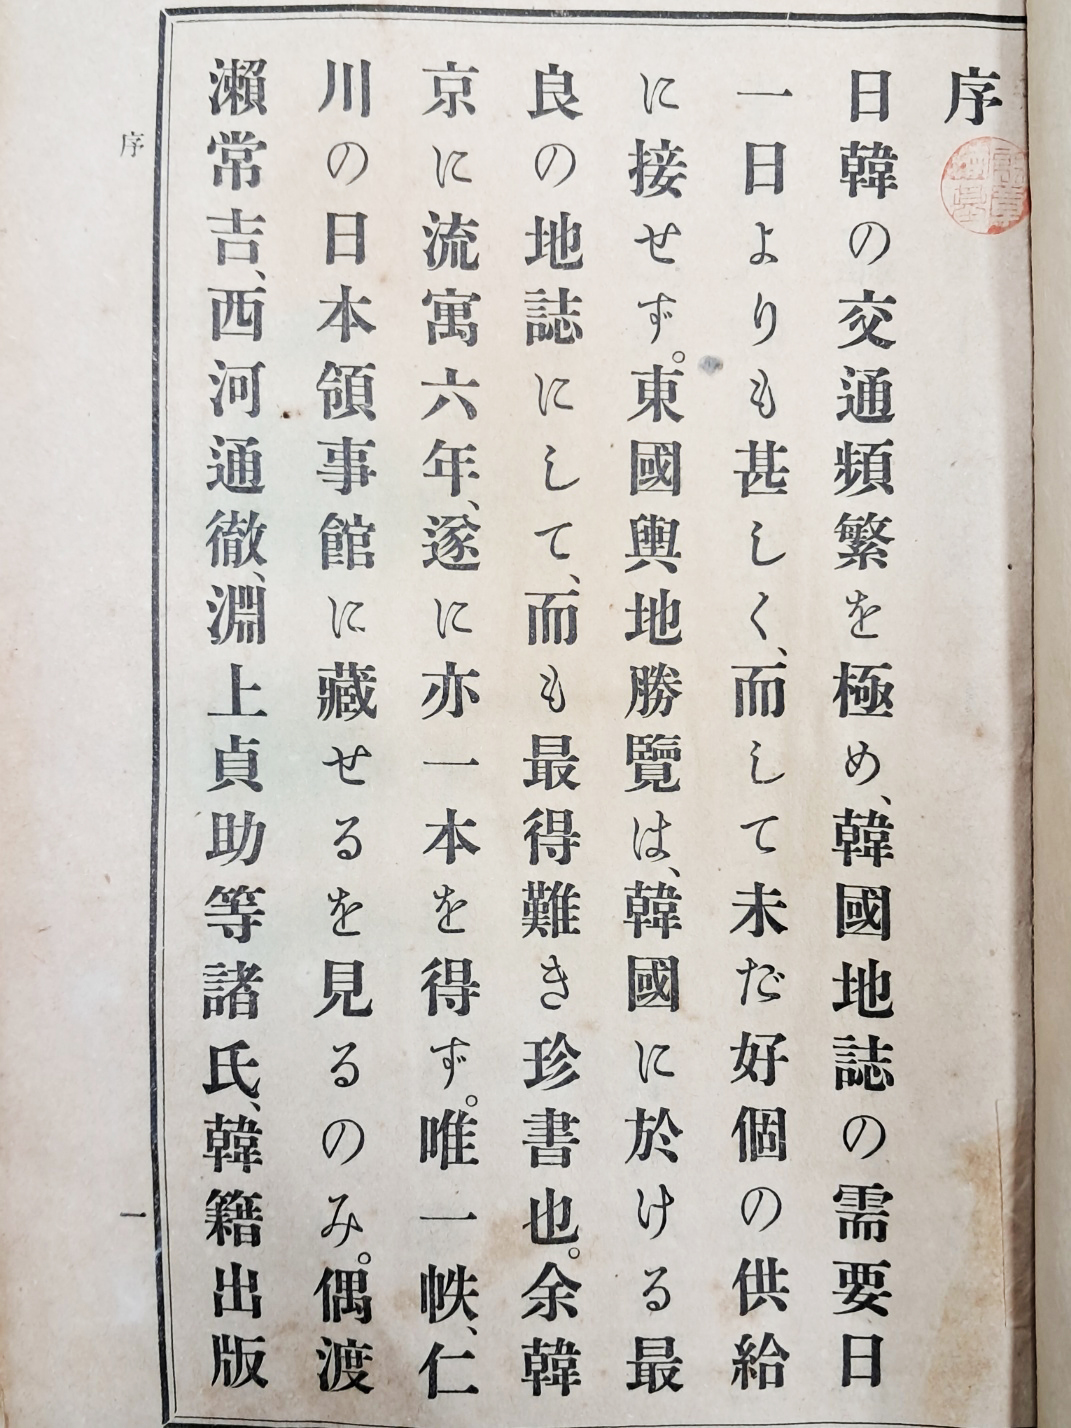 序
日韓の交通頻繁を極め、韓國地誌の需要日
一日よりも甚しく、而して未だ好個の供給
に接せず。東國輿地勝覽は、韓國に於ける最
良の地誌にして、而も最得難き珍書也。余韓
京に流寓六年、遂に亦一本を得ず。唯一帙、仁
川の日本領事館に藏せるを見るのみ。偶渡
瀨常吉、西河通徹、淵上貞助等諸氏、韓籍出版
序
一